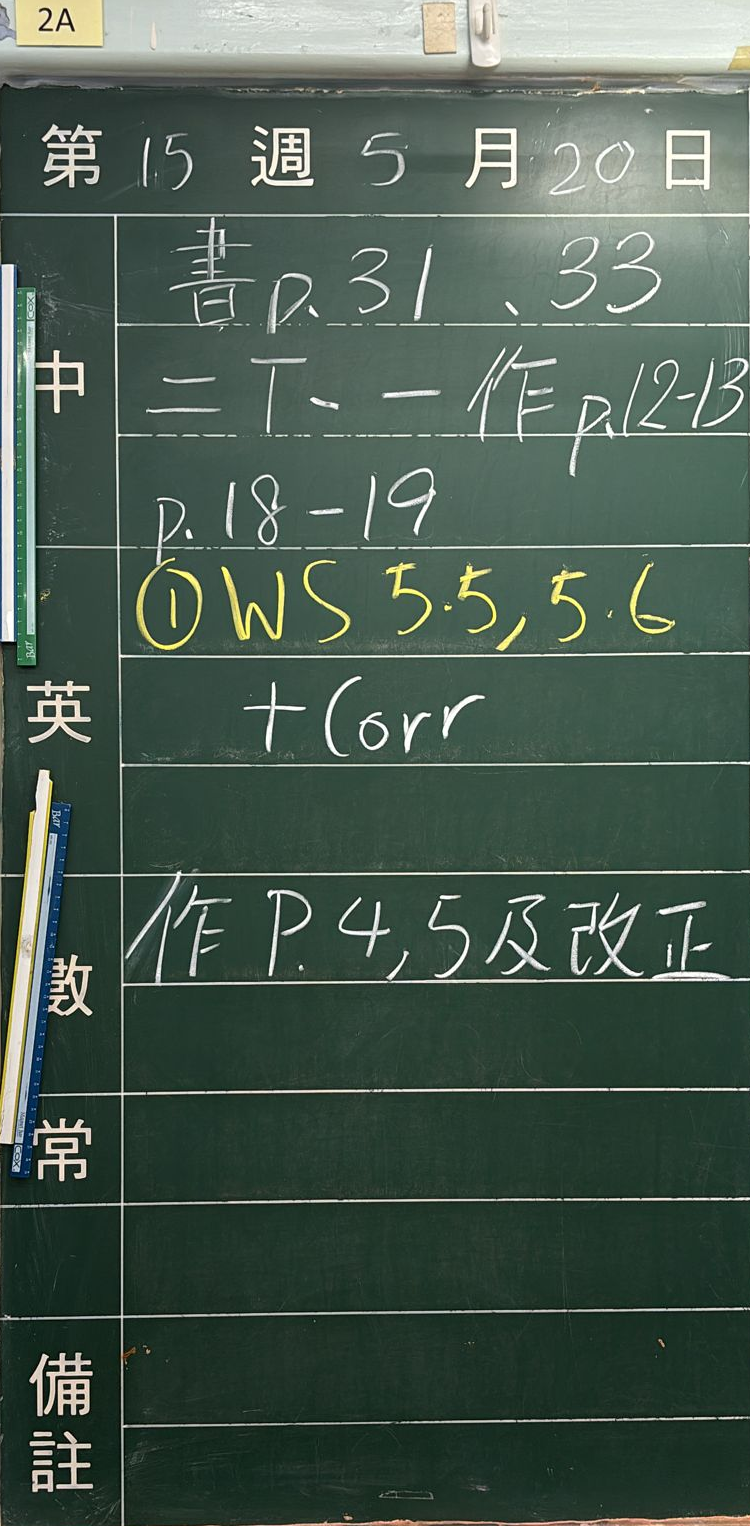 2A
第 15 週 5 月 20 日
中
書 p. 31、33
二下、一作 p.12-13
p. 18-19
英
① WS 5.5, 5.6
+ Corr
數
作 P. 4, 5 及改正
常
備註